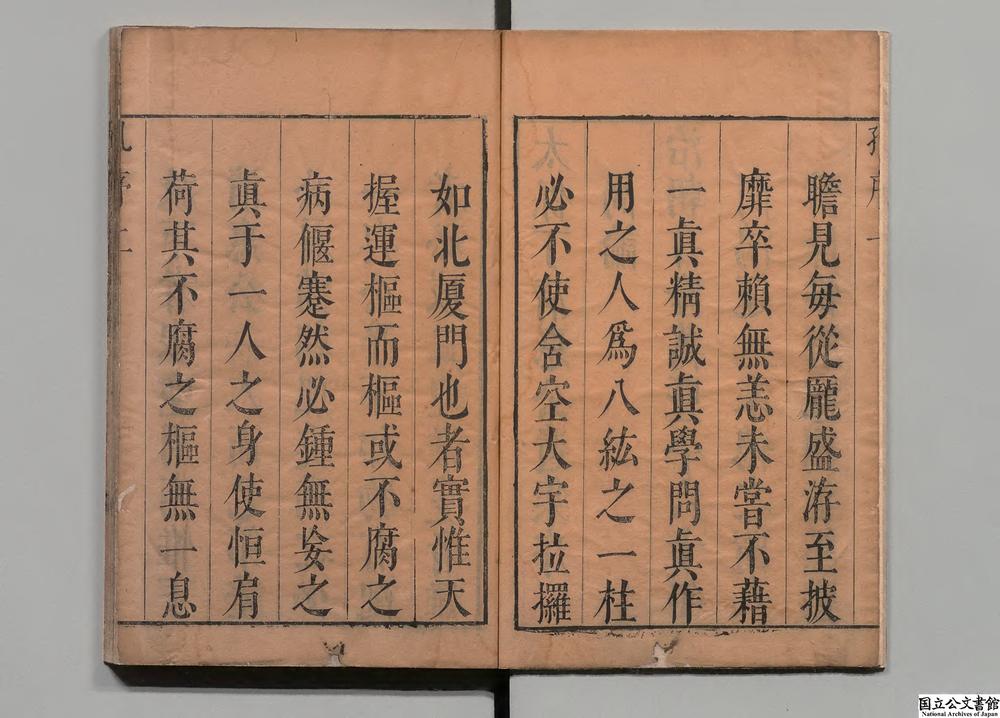 瞻見每從龐盛洊至披
靡卒賴無恙未嘗不藉
一眞精誠眞學問眞作
用之人爲八紘之一柱
必不使含空大宇拉攞
如北厦門也者實惟天
握運樞而樞或不腐之
病偃蹇然必鍾無妄之
眞于一人之身使恒肩
荷其不腐之樞無一息
国立公文書館
National Archives of Japan